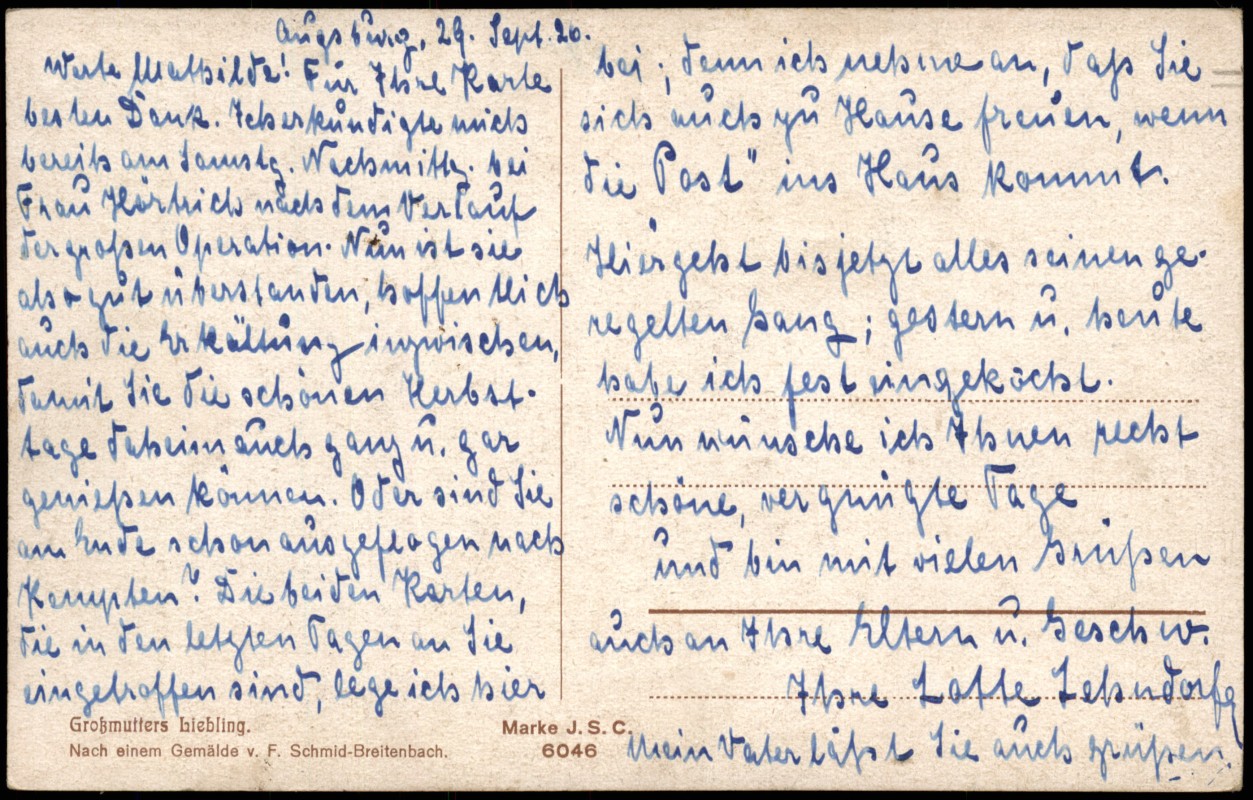 Augsburg, 29. Sept. 20.
Werte Mathilde! Für Ihre Karte
besten Dank. Ich erkundigte mich
bereits am Samstg. Nachmittg. bei
Frau Hörtrich nach dem Verlauf
der großen Operation. Nun ist sie
also gut überstanden, hoffentlich
auch die Erkältung inzwischen,
damit Sie die schönen Herbst-
tage daheim auch ganz u. gar
genießen können. Oder sind Sie
am Ende schon ausgeflogen nach
Kempten? Die beiden Karten,
die in den letzten Tagen an Sie
eingetroffen sind, lege ich hier
bei; denn ich nehme an, daß Sie
sich auch zu Hause freuen, wenn
die Post" ins Haus kommt.
Hier geht bis jetzt alles seinen ge-
regelten Gang; gestern u. heute
habe ich fest eingekocht.
Nun wünsche ich Ihnen recht
schöne, vergnügte Tage
und bin mit vielen Grüßen
auch an Ihre Eltern u. Geschw.
Ihre Lotte
Mein Vater läßt Sie auch grüßen.
Großmutters Liebling.
Nach einem Gemälde v. F. Schmid-Breitenbach.
Marke J. S. C.
6046